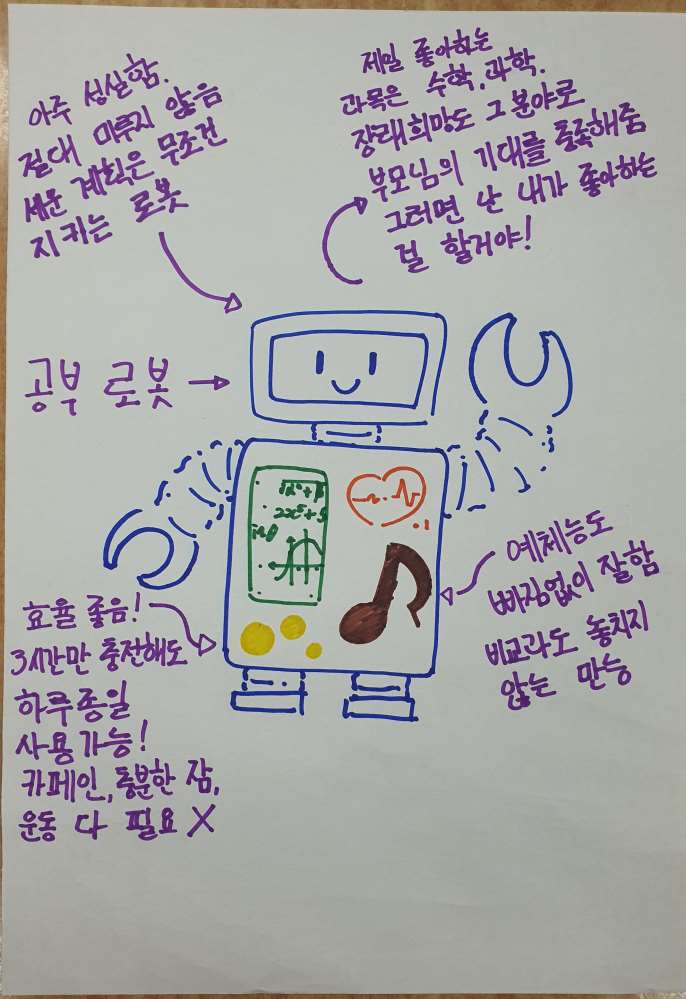 아주 성실함.
절대 미루지 않음
세운 계획은 무조건
지키는 로봇
제일 좋아하는
과목은 수학, 과학.
장래희망도 그 분야로
부모님의 기대를 충족해줌
그러면 난 내가 좋아하는
걸 할거야!
공부 로봇
예체능도
빠짐없이 잘함
비교과도 놓치지
않는 만능
효율 좋음!
3시간만 충전해도
하루종일
사용가능!
카페인, 충분한 잠,
운동 다 필요 X